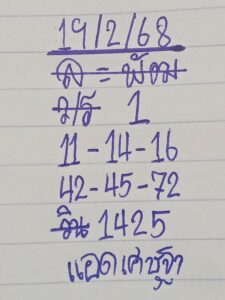 19/2/68
ล = พ้อม
ว/ร 1
11-14-16
42-45-72
วิน 1425
แอดเศรษฐีจ๋า